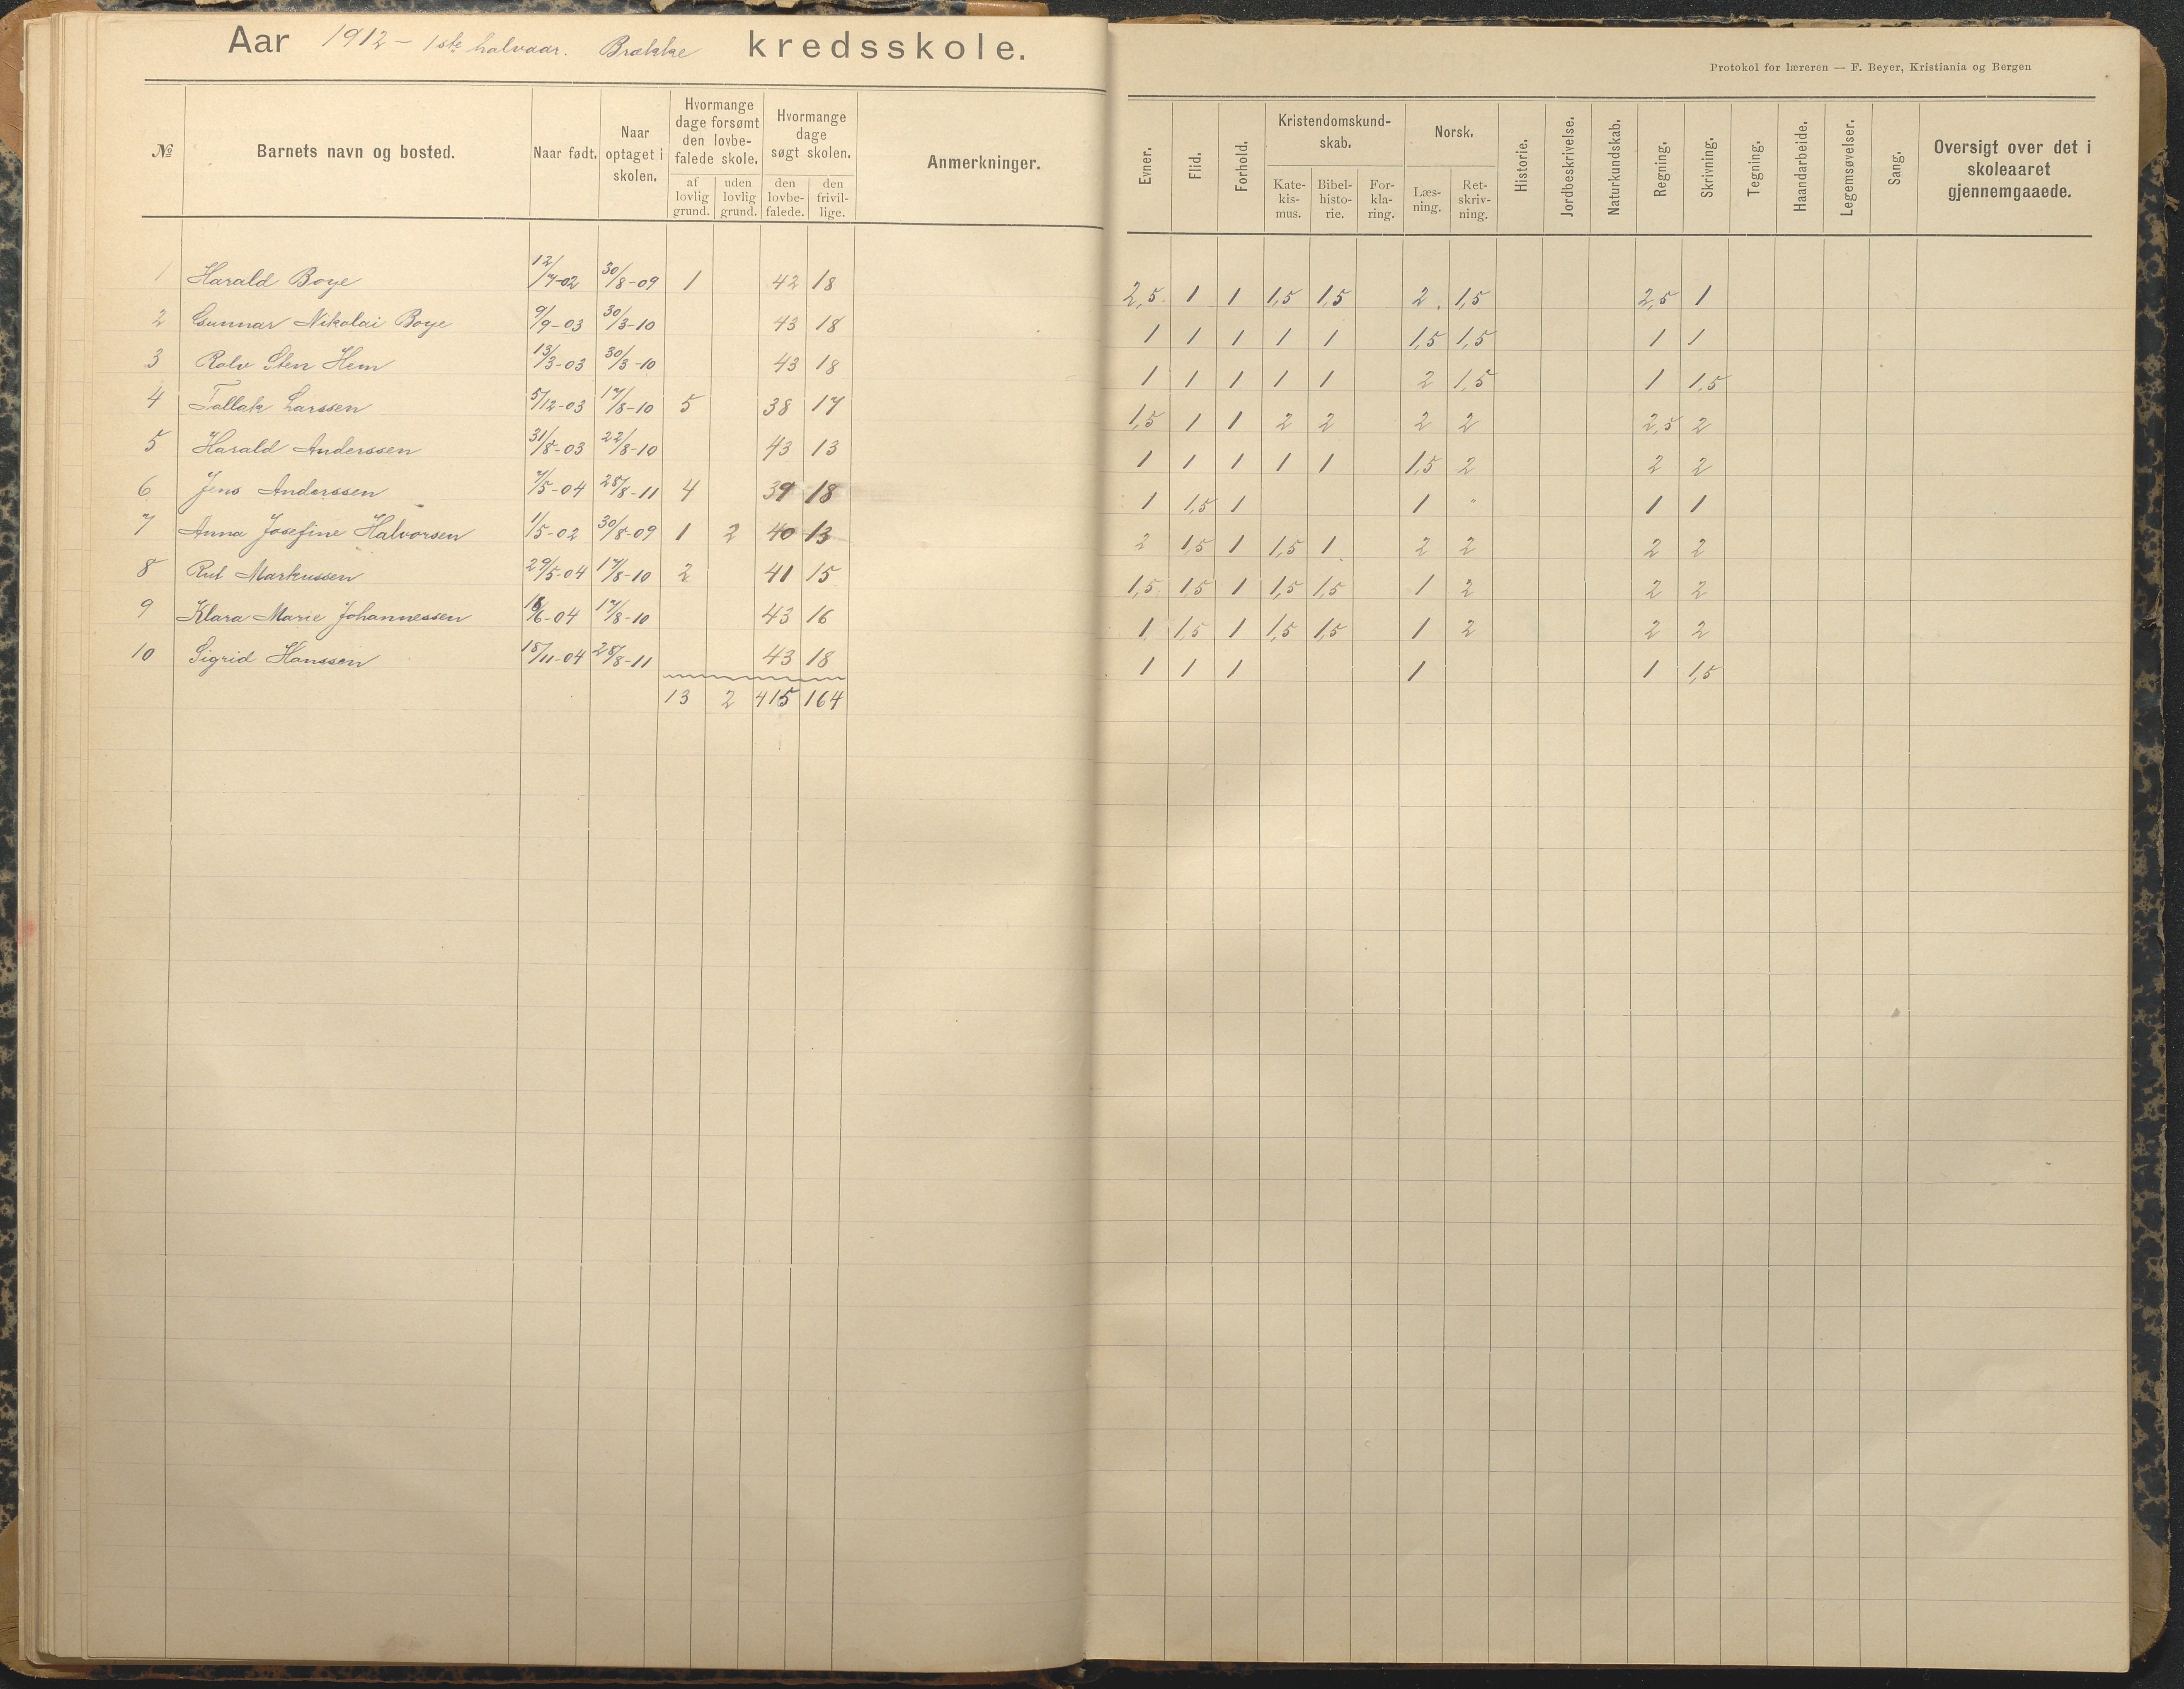 Aar 1912 – 1ste halvaar. Brække kredsskole.
Protokol for læreren — F. Beyer, Kristiania og Bergen
№ Barnets navn og bosted. Naar født. Naar optaget i skolen. Hvormange dage forsømt den lovbefalede skole. af lovlig grund. uden lovlig grund. Hvormange dage søgt skolen. den lovbefalede. den frivillige. Anmerkninger. Evner. Flid. Forhold. Kristendomskundskab. Katekismus. Bibelhistorie. Forklaring. Norsk. Læsning. Retskrivning. Historie. Jordbeskrivelse. Naturkundskab. Regning. Skrivning. Tegning. Haandarbeide. Legemsøvelser. Sang. Oversigt over det i skoleaaret gjennemgaaede.
1 Harald Boye 12/7-02 30/8-09 1 42 18 2,5 1 1 1,5 1,5 2 1,5 2,5 1
2 Gunnar Nikolai Boye 9/9-03 30/3-10 43 18 1 1 1 1 1 1,5 1,5 1 1
3 Rolv Sten Hem 13/3-03 30/3-10 43 18 1 1 1 1 1 2 1,5 1 1,5
4 Tallak Larssen 5/12-03 17/8-10 5 38 17 1,5 1 1 2 2 2 2 2,5 2
5 Harald Anderssen 31/8-03 22/8-10 43 13 1 1 1 1 1 1,5 2 2 2
6 Jens Anderssen 7/5-04 28/8-11 4 39 18 1 1,5 1 1 " 1 1
7 Anna Josefine Halvorsen 1/5-02 30/8-09 1 2 40 13 2 1,5 1 1,5 1 2 2 2 2
8 Rut Markussen 29/5-04 17/8-10 2 41 15 1,5 1,5 1 1,5 1,5 1 2 2 2
9 Klara Marie Johannessen /6-04 17/8-10 43 16 1 1,5 1 1,5 1,5 1 2 2 2
10 Sigrid Hanssen 18/11-04 28/8-11 43 18 1 1 1 1 1 1,5
13 2 415 164